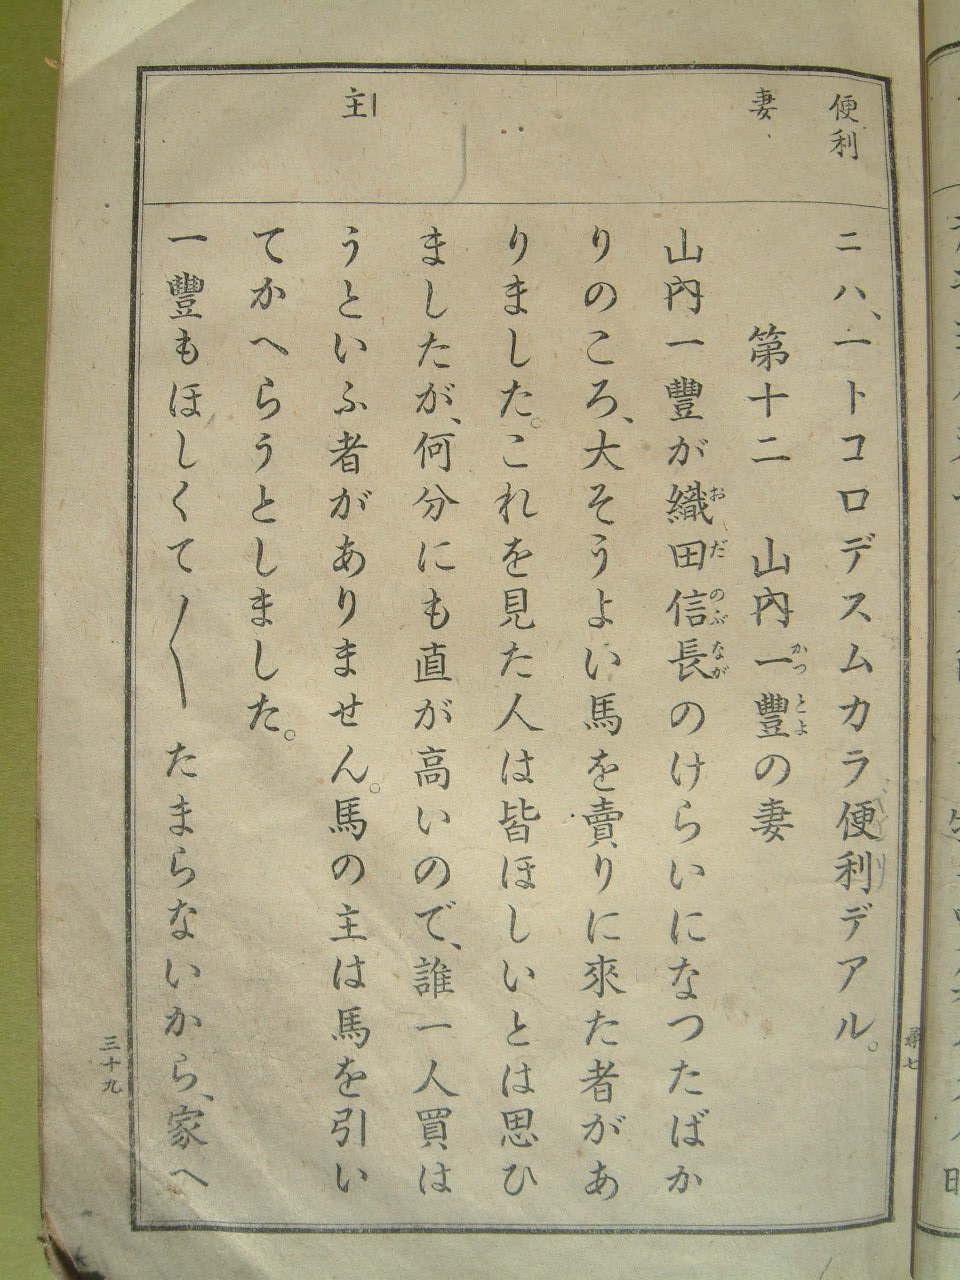 便利
妻
主
ニハ、一トコロデスムカラ便利デアル。
第十二 山內一豐の妻
かつとよ
山內一豐が織田信長のけらいになつたばか
おだのぶなが
りのころ、大そうよい馬を賣りに來た者があ
りました。これを見た人は皆ほしいとは思ひ
ましたが、何分にも直が高いので、誰一人買は
うといふ者がありません。馬の主は馬を引い
てかへらうとしました。
一豐もほしくて〱たまらないから、家へ
尋七
三十九